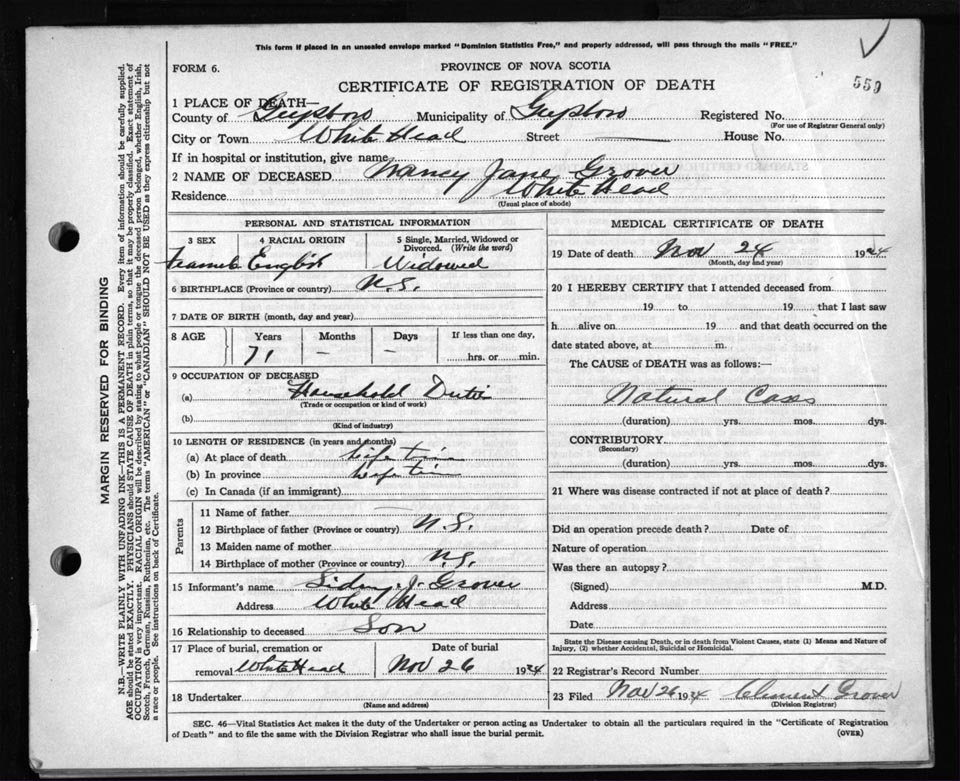 This form if placed in an unsealed envelope marked "Dominion Statistics Free," and properly addressed, will pass through the mails "FREE."
FORM 6. PROVINCE OF NOVA SCOTIA
559
CERTIFICATE OF REGISTRATION OF DEATH
1 PLACE OF DEATH—
County of Guysboro Municipality of Guysboro Registered No.
(For use of Registrar General only)
City or Town White Head Street House No.
If in hospital or institution, give name
2 NAME OF DECEASED. Nancy Jane Grover
Residence White Head
(Usual place of abode)
PERSONAL AND STATISTICAL INFORMATION
3 SEX 4 RACIAL ORIGIN 5 Single, Married, Widowed or Divorced. (Write the word)
English Widowed
6 BIRTHPLACE (Province or country) N.S.
7 DATE OF BIRTH (month, day and year)
8 AGE Years Months Days If less than one day,
71 - - hrs. or min.
9 OCCUPATION OF DECEASED
(a) Household Dutie
(Trade or occupation or kind of work)
(b)
(Kind of industry)
10 LENGTH OF RESIDENCE (in years and months)
(a) At place of death life time
(b) In province life time
(c) In Canada (if an immigrant)
Parents
11 Name of father
12 Birthplace of father (Province or country) N.S.
13 Maiden name of mother
14 Birthplace of mother (Province or country) N.S.
15 Informant's name Sidney J. Grover
Address White Head
16 Relationship to deceased Son
17 Place of burial, cremation or removal White Head Date of burial Nov 26 1934
18 Undertaker
(Name and address)
MEDICAL CERTIFICATE OF DEATH
19 Date of death Nov 24 1934
(Month, day and year)
20 I HEREBY CERTIFY that I attended deceased from
19 to 19 that I last saw
h alive on 19 and that death occurred on the
date stated above, at m.
The CAUSE of DEATH was as follows:
Natural Cases
(duration) yrs. mos. dys.
CONTRIBUTORY
(Secondary)
(duration) yrs. mos. dys.
21 Where was disease contracted if not at place of death?
Did an operation precede death? Date of
Nature of operation
Was there an autopsy?
(Signed) M.D.
Address
Date
State the Disease causing Death, or in death from Violent Causes, state (1) Means and Nature of
Injury, (2) whether Accidental, Suicidal or Homicidal.
22 Registrar's Record Number
23 Filed Nov 26 1934 Clement Grover
(Division Registrar)
SEC. 46—Vital Statistics Act makes it the duty of the Undertaker or person acting as Undertaker to obtain all the particulars required in the "Certificate of Registration
of Death" and to file the same with the Division Registrar who shall issue the burial permit. (OVER)
MARGIN RESERVED FOR BINDING
N.B.—WRITE PLAINLY WITH UNFADING INK—THIS IS A PERMANENT RECORD. Every item of information should be carefully supplied.
AGE should be stated EXACTLY. PHYSICIANS should STATE CAUSE OF DEATH in plain terms, so that it may be properly classified. Exact statement of
OCCUPATION is very important. RACIAL ORIGIN will be described by stating to what people or tongue the deceased person belonged, whether English, Irish,
Scotch, French, German, Russian, Ruthenian, etc. The terms "AMERICAN" or "CANADIAN" SHOULD NOT BE USED as they express citizenship but not
a race or people. See instructions on back of Certificate.